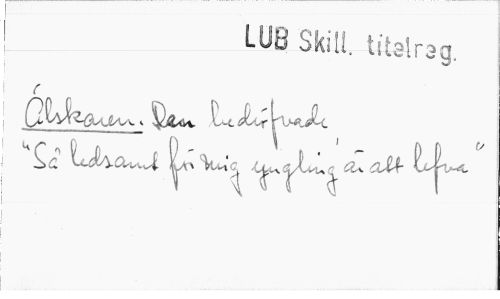 LUB Skill. titelreg.
Älskaren. Den bedröfvade
"Så ledsamt för mig yngling är att lefva"